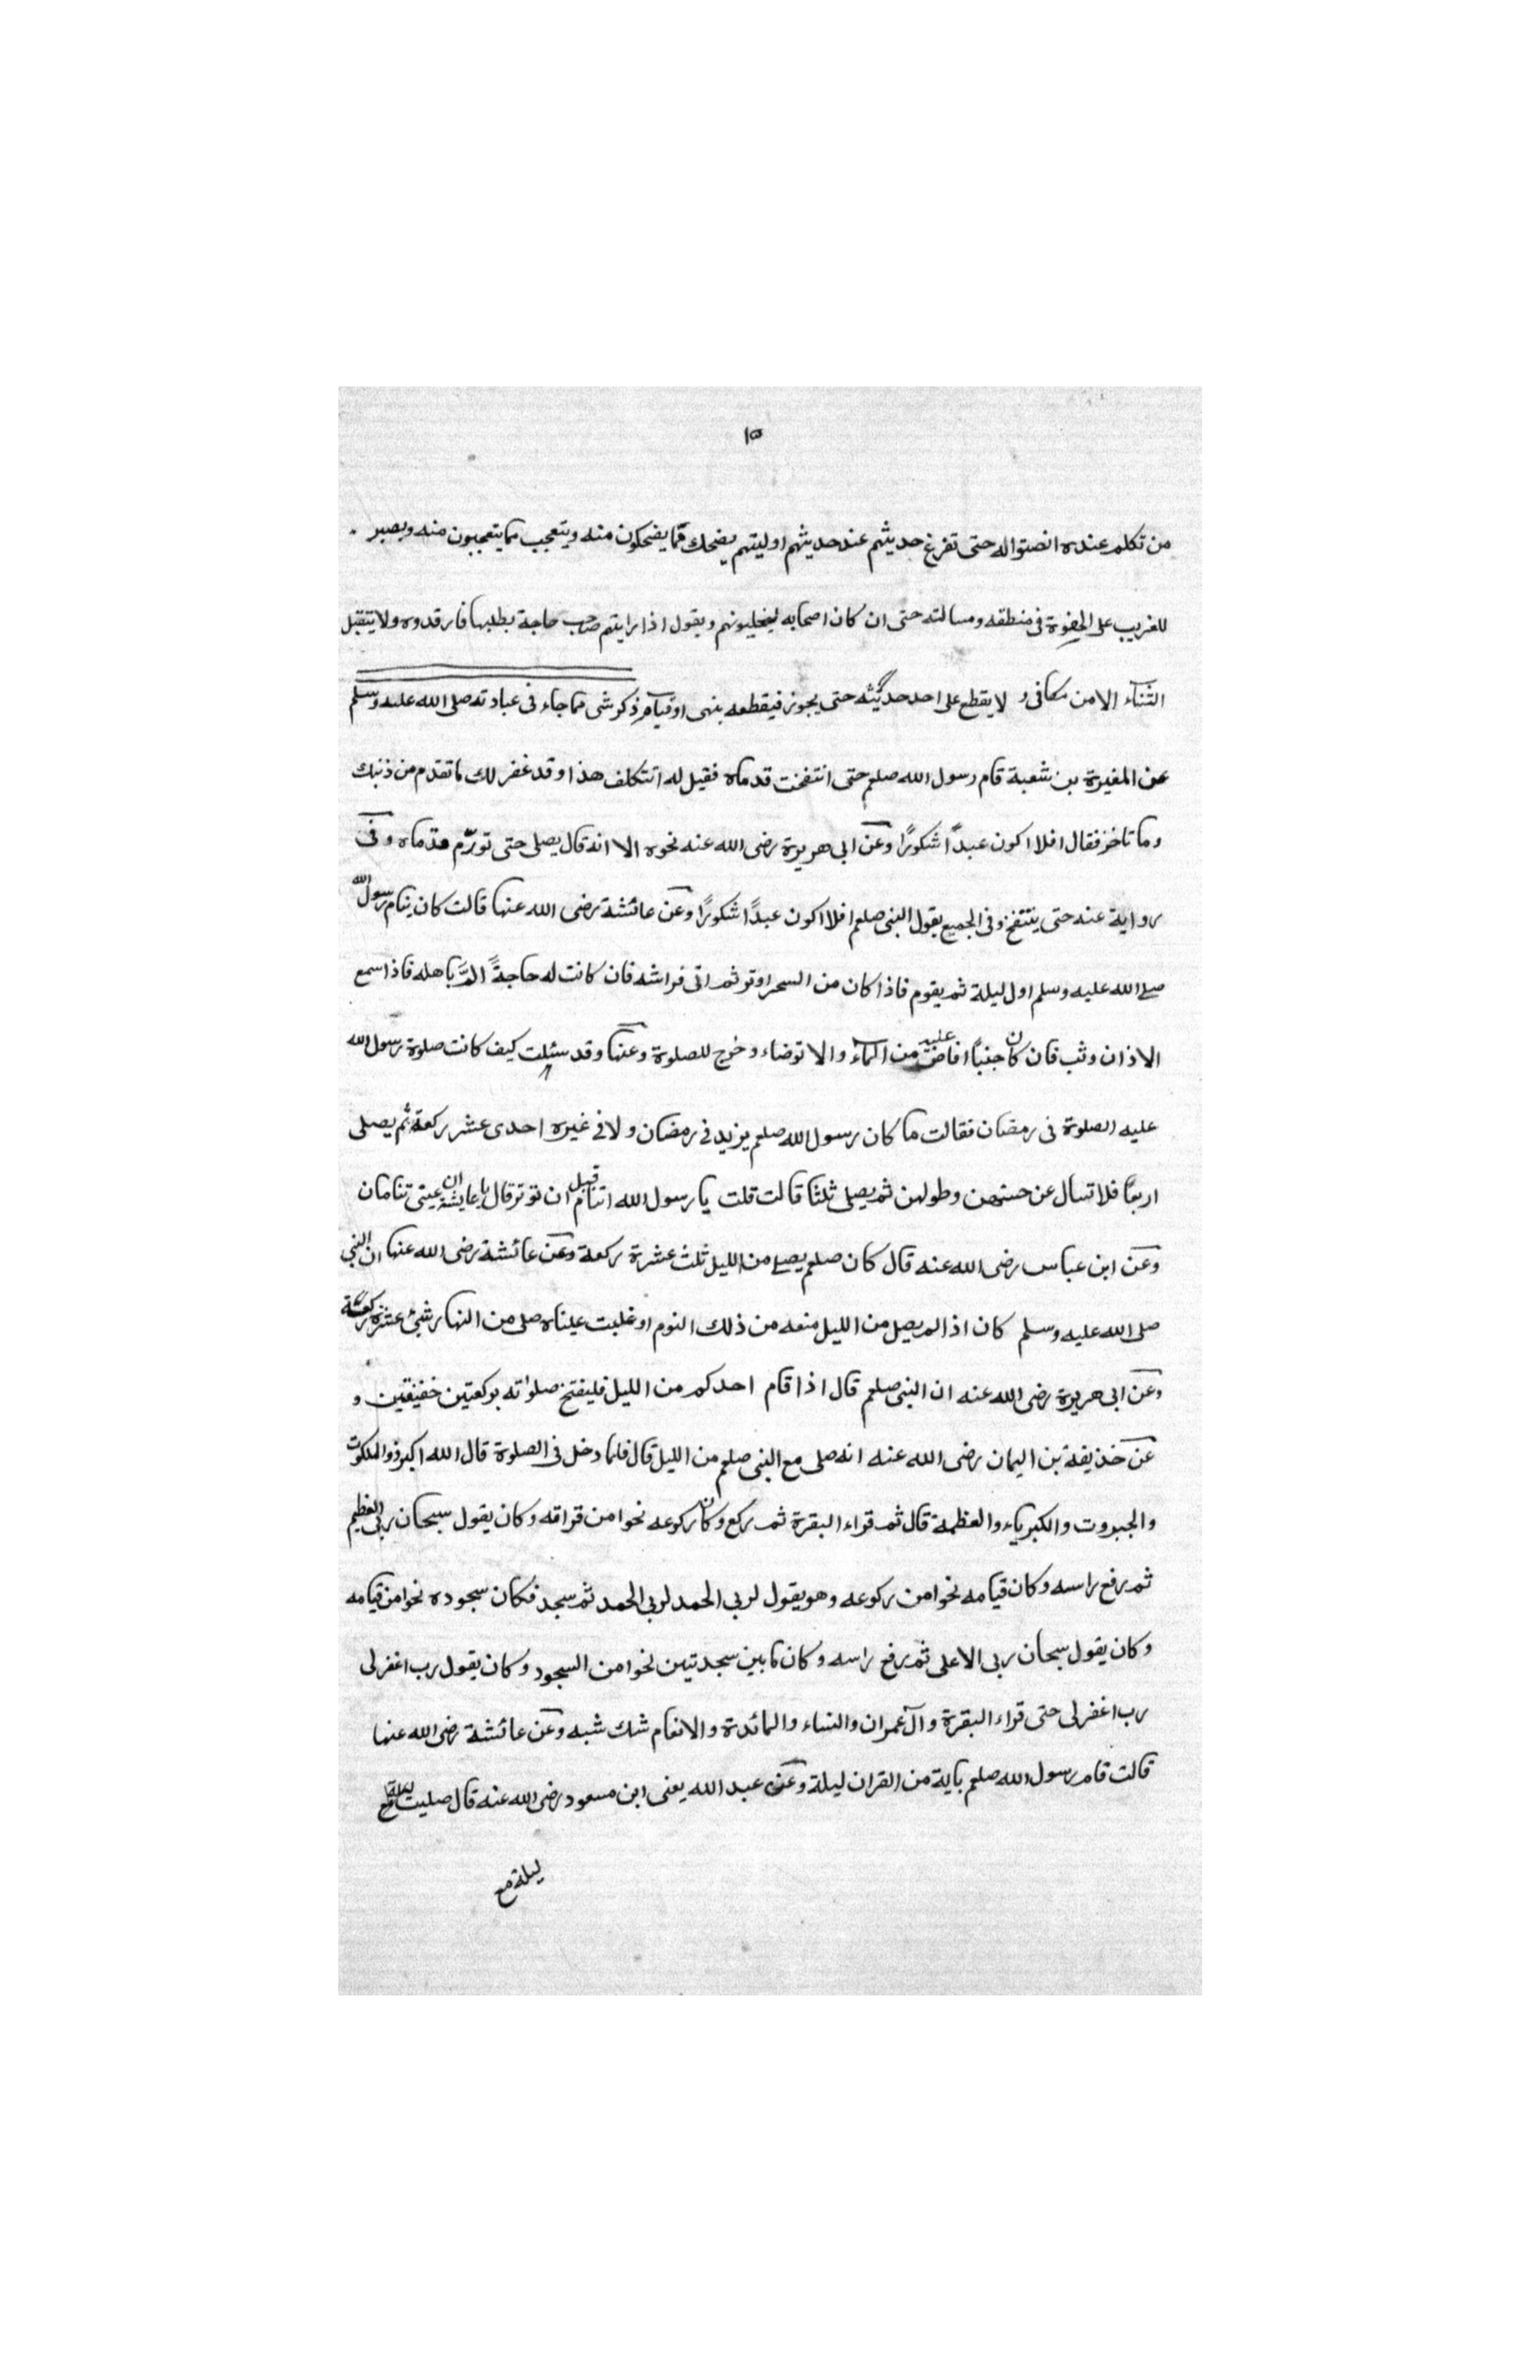 ١٥
من تكلم عنده انصتوا له حتى تفرغ حديثهم عند حديثهم اوليتهم يضحك مما يضحكون منه ويتعجب مما يتعجبون منه ويصبر
للغريب على الجفوة فى منطقه ومسالته حتى ان كان اصحابه ليجلبونهم ويقول اذا رايتم صاحب حاجة يطلبها فارفدوه ولا يتقبل
الثناء الا من مكافى ولا يقطع على احد حديثه حتى يجوز فيقطعه بنهى او قيام ذكر شى مما جاء فى عبادته صلى الله عليه وسلم
عن المغيرة بن شعبة قام رسول الله صلعم حتى انتفخت قدماه فقيل له اتتكلف هذا وقد غفر لك ما تقدم من ذنبك
وما تاخر فقال افلا اكون عبدًا شكورًا وعن ابى هريرة رضى الله عنه نحوه الا انه قال يصلى حتى تورّم قدماه وفى
رواية عنه حتى ينتفخ وفى الجميع يقول النبى صلعم افلا اكون عبدًا شكورًا وعن عائشة رضى الله عنها قالت كان ينام رسول الله
صلى الله عليه وسلم اول ليلة ثم يقوم فاذا كان من السحر اوتر ثم اتى فراشه فان كانت له حاجةً الَمَّ باهله فاذا سمع
الاذان وثب فان كان جنبًا افاض عليه من الماء والا توضاء وخرج للصلوة وعنها وقد سئلت كيف كانت صلوة رسول الله
عليه الصلوة فى رمضان فقالت ما كان رسول الله صلعم يزيد فى رمضان ولا فى غيره احدى عشر ركعة ثم يصلى
اربعًا فلا تسال عن حسنهن وطولهن ثم يصلى ثلثا قالت قلت يا رسول الله اتنام قبل ان توتر قال يا عايشة ان عينى تنامان
وعن ابن عباس رضى الله عنه قال كان صلعم يصلى من الليل ثلث عشرة ركعة وعن عائشة رضى الله عنها ان النبى
صلى الله عليه وسلم كان اذا لم يصل من الليل منعه من ذلك النوم او غلبت عيناه صلى من النهار ثنتى عشرة ركعة
وعن ابى هريرة رضى الله عنه ان النبى صلعم قال اذا قام احدكم من الليل فليفتح صلواته بركعتين خفيفتين و
عن حذيفة بن اليمان رضى الله عنه انه صلى مع النبى صلعم من الليل قال فلما دخل فى الصلوة قال الله اكبر ذو الملكوت
والجبروت والكبرياء والعظمة قال ثم قراء البقرة ثم ركع وكان ركوعه نحوا من قراقه وكان يقول سبحان ربى العظيم
ثم رفع راسه وكان قيامه نحوا من ركوعه وهو يقول لربى الحمد لربى الحمد ثم سجد فكان سجوده نحوا من قيامه
وكان يقول سبحان ربى الاعلى ثم رفع راسه وكان ما بين سجدتين نحوا من السجود وكان يقول رب اغفر لى
رب اغفر لى حتى قراء البقرة وآل عمران والنساء والمائدة والانعام شك شبه وعن عائشة رضى الله عنها
قالت قام رسول الله صلعم باية من القران ليلة وعن عبد الله يعنى ابن مسعود رضى الله عنه قال صليت ليلة مع
ليلة مع